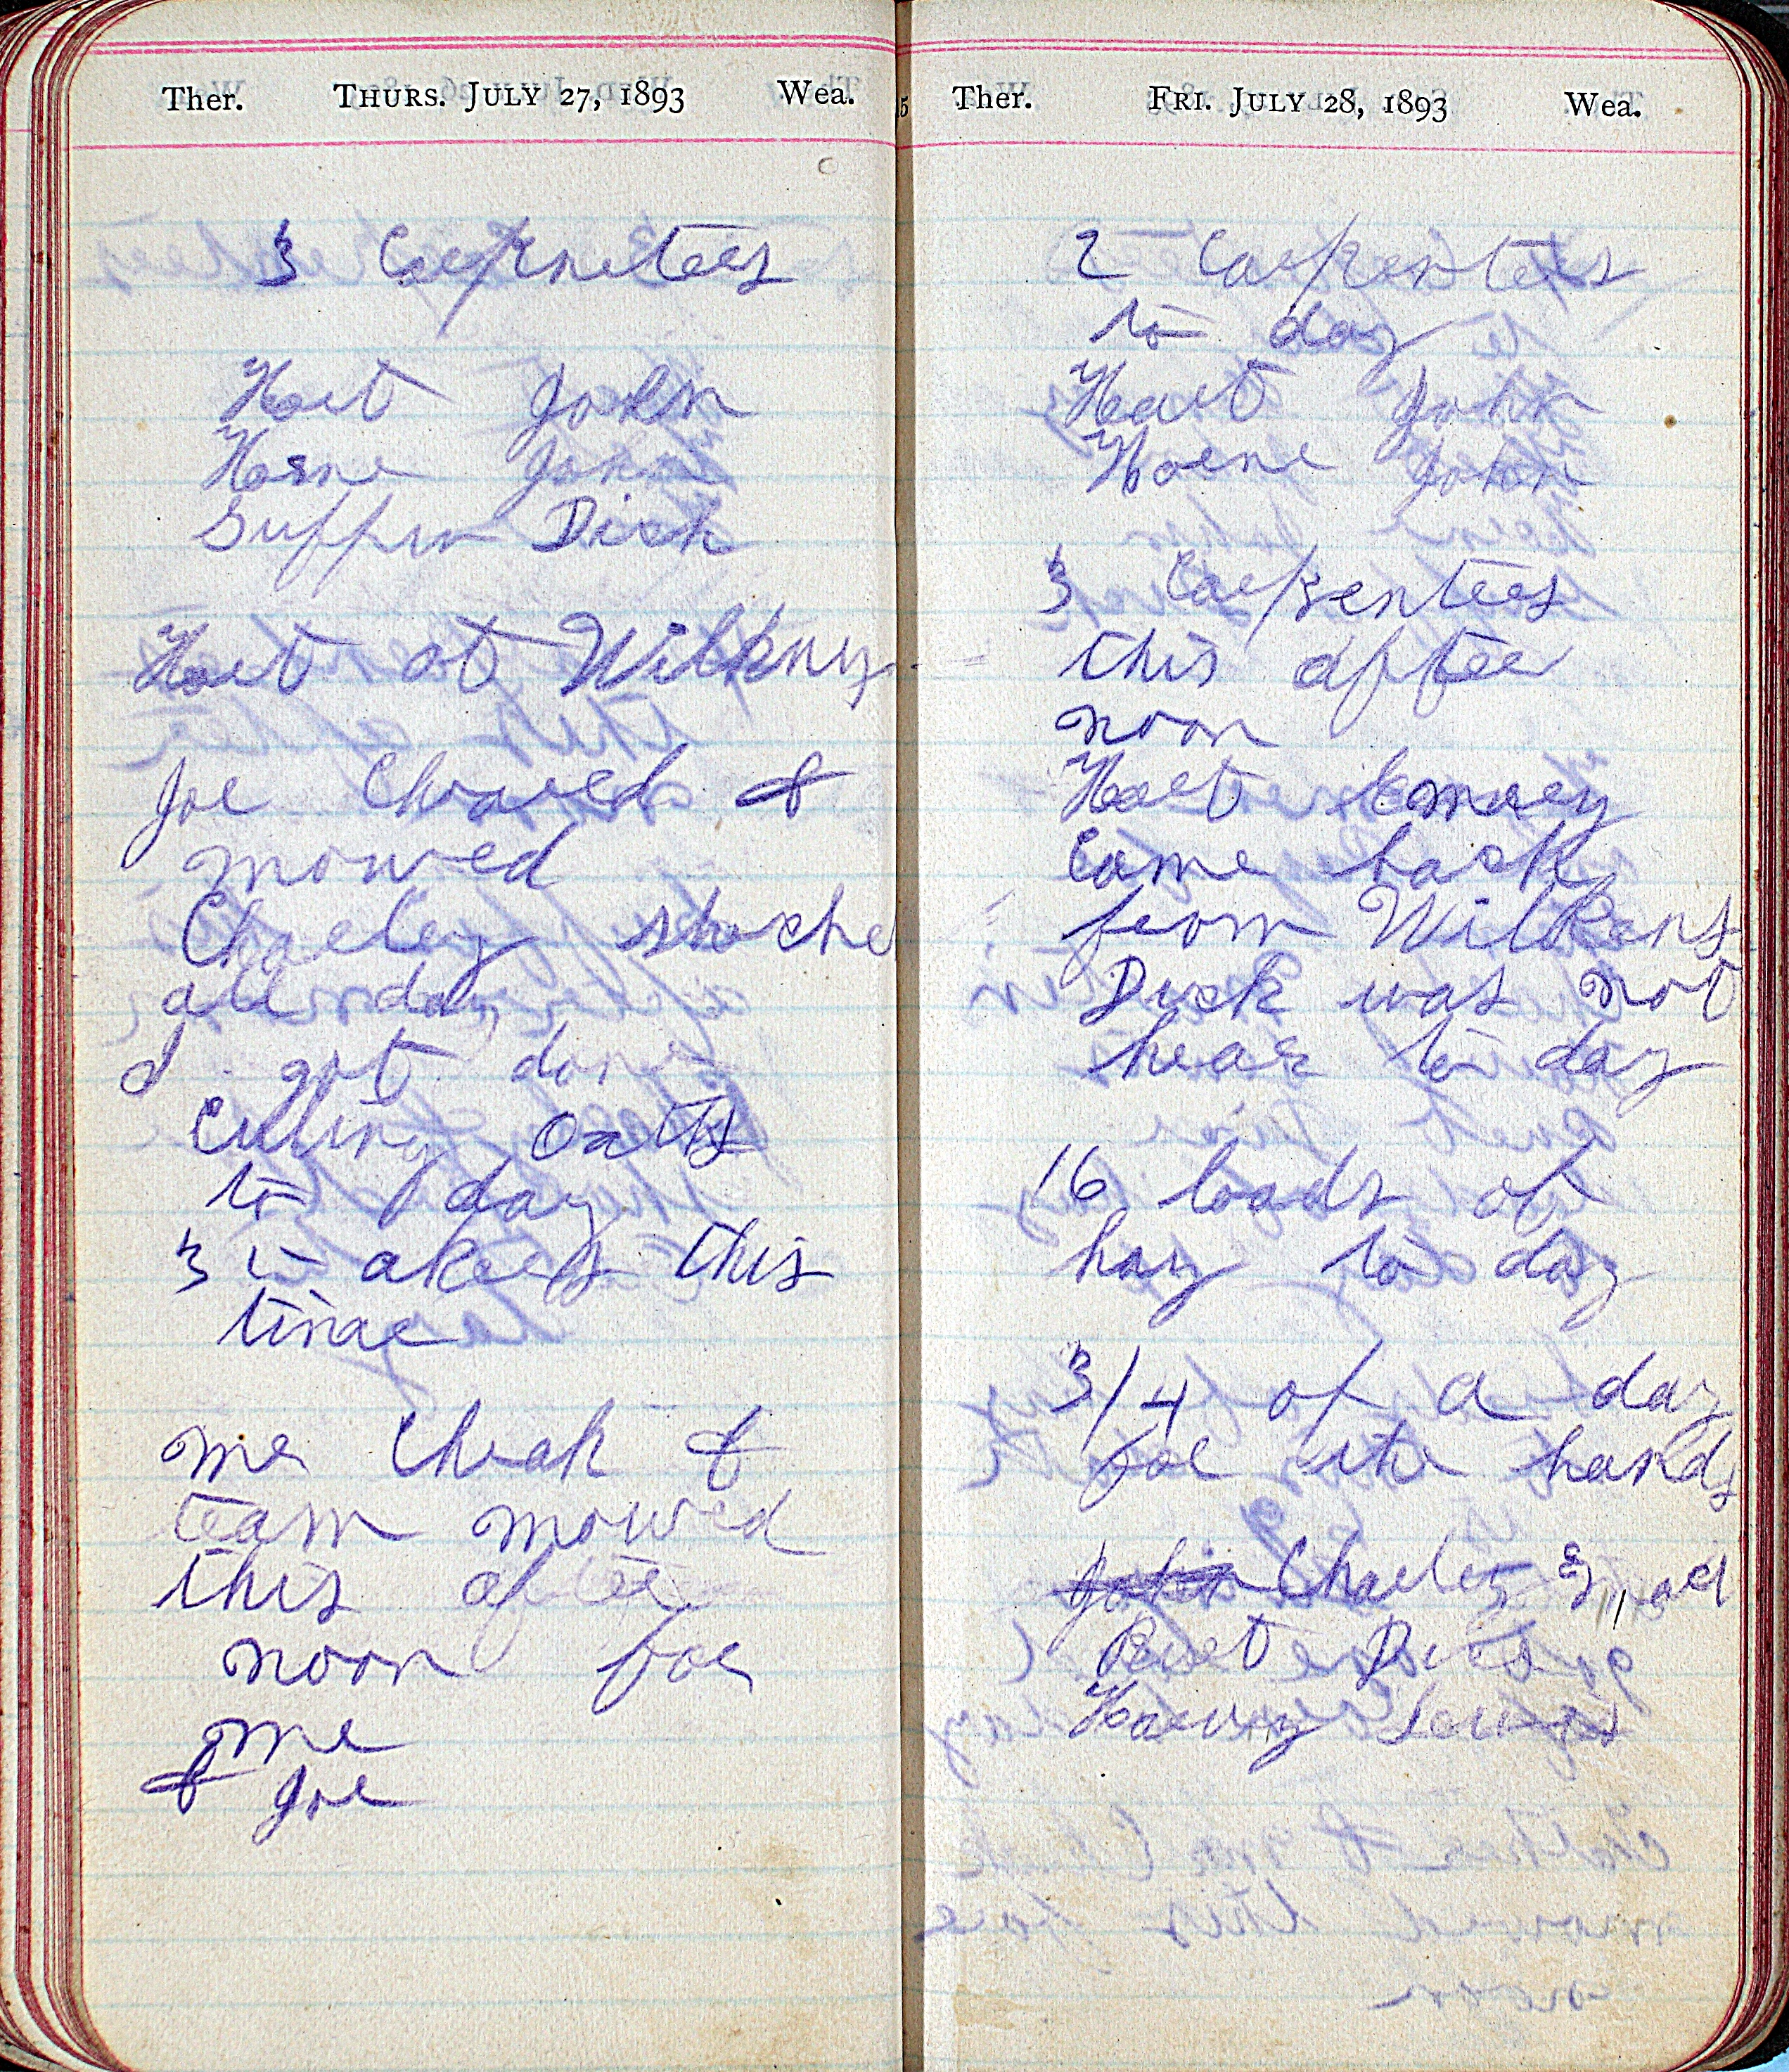 Ther. THURS. JULY 27, 1893 Wea.
3 Carpnters
Hart John
Horne John
Suffrn Dick
Hart at Wilkins
Joe Choared &
mowed
Charley shocke
all day
I got done
Cutting Oatts
to day
3 akers this
time
me Cheak &
team mowed
this after
noon for
me
& Joe
Ther. FRI. JULY 28, 1893 Wea.
2 Carpenters
to day
Hart John
Horne John
3 Carpenters
this after
noon
Hart Emory
Came back
from Wilkens
Dick was not
hear to day
16 loads of
hay to day
3/4 of a day
for the hands
John Charley
Burt
Harvy Lewis